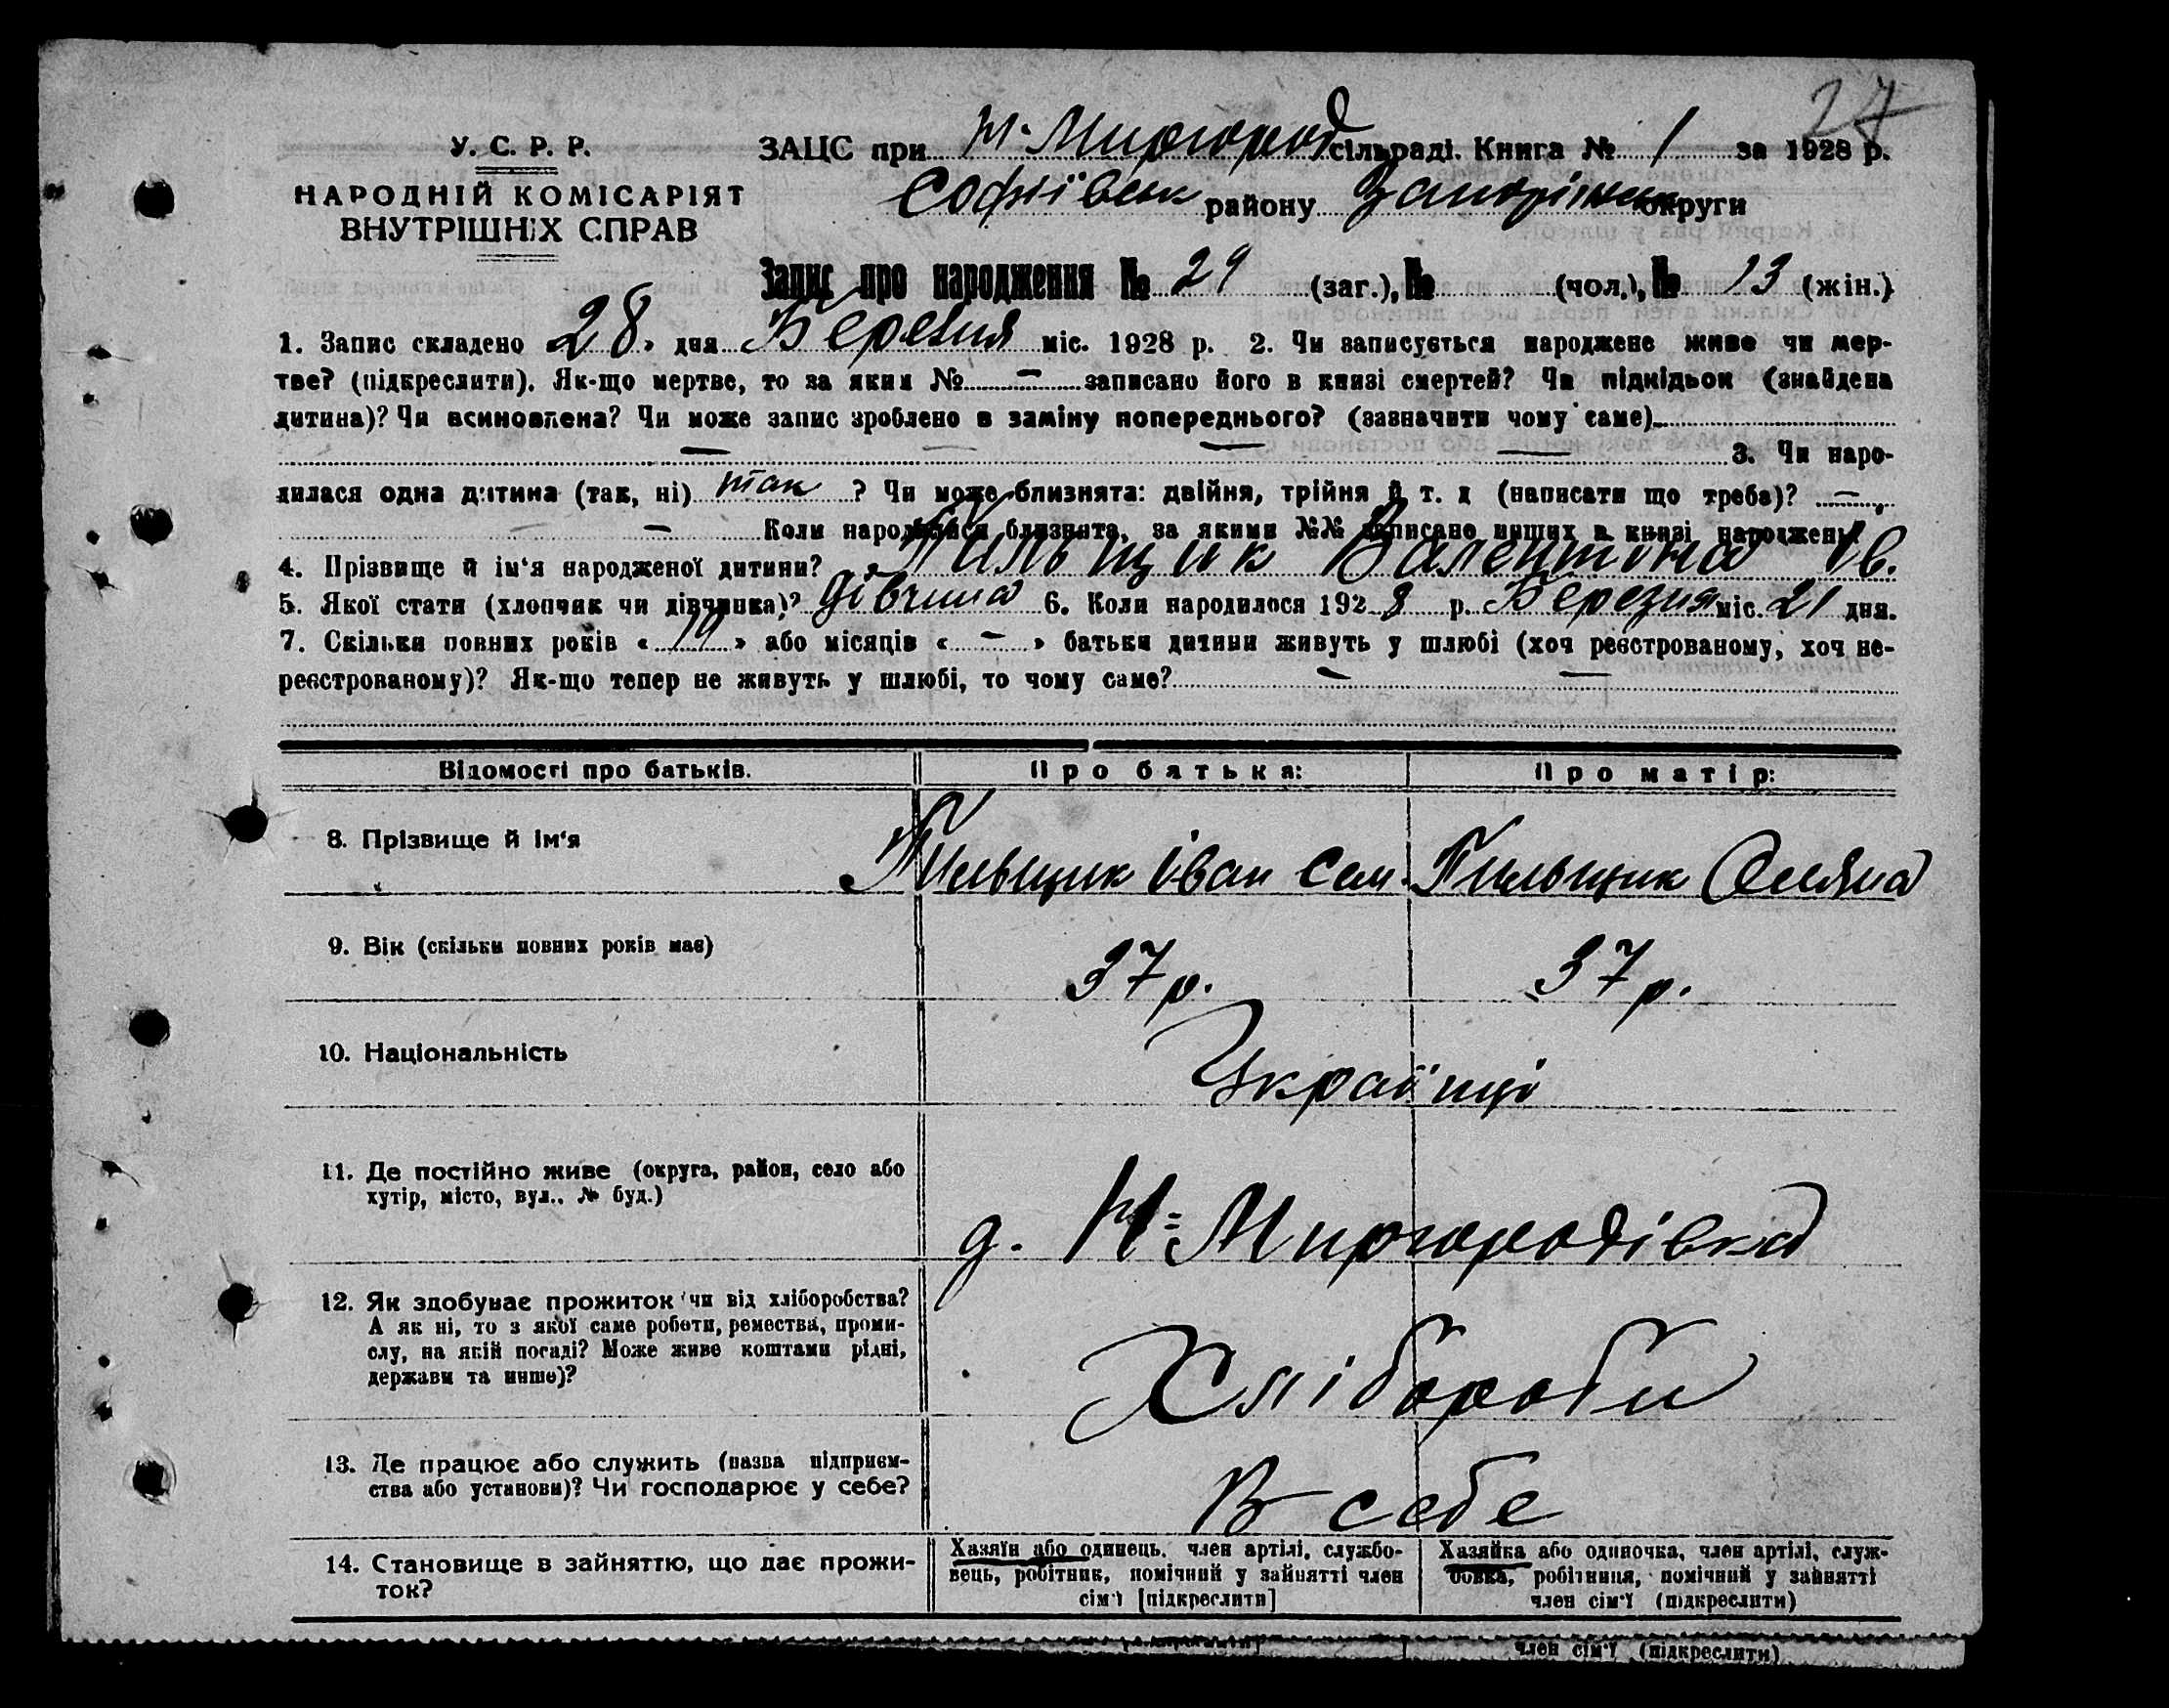 27
У. С. Р. Р.
НАРОДНІЙ КОМІСАРІЯТ
ВНУТРІШНІХ СПРАВ
ЗАЦС при Н-Миргород сільраді. Книга № 1 за 1928 р.
Софіївськ району округи
Запис про народження № 29 (заг.), № (чол.), № 13 (жін.)
1. Запис складено 28 „ дня Березня міс. 1928 р. 2. Чи записується народжене живе чи мер-
тве? (підкреслити). Як-що мертве, то за яким № — записано його в книзі смертей? Чи підкідьок (знайдена
дитина)? Чи всиновлена? Чи може запис зроблено в заміну попереднього? (зазначити чому саме)
— — — 3. Чи наро-
дилася одна дитина (так, ні) так ? Чи може близнята: двійня, трійня й т. д (написати що треба)? —
— Коли народилися близнята, за якими №№ записано инших в книзі народжень
4. Прізвище й ім'я народженої дитини? Пильщик Валентина Ів.
5. Якої стати (хлопчик чи дівчинка)? Дівчина 6. Коли народилося 1928 р. Березня міс. 21 дня.
7. Скільки повних років « 19 » або місяців « — » батьки дитини живуть у шлюбі (хоч реєстрованому, хоч не-
реєстрованому)? Як-що тепер не живуть у шлюбі, то чому саме? — —
Відомості про батьків. Про батька: Про матір:
8. Прізвище й ім'я Пильщик Іван Сем. Пильщик
9. Вік (скільки повних років має) 37 р. 37 р.
10. Національність Українці
11. Де постійно живе (округа, район, село або
хутір, місто, вул., № буд.)
д. Н-Миргородівка
12. Як здобуває прожиток (чи від хліборобства?
А як ні, то з якої саме роботи, ремества, проми-
слу, на якій посаді? Може живе коштами рідні,
держави та инше)?
Хлібороби
13. Де працює або служить (назва підприєм-
ства або установи)? Чи господарює у себе?
В себе
14. Становище в зайняттю, що дає прожи-
ток?
Хазяїн або одинець, член артілі, службо-
вець, робітник, помічний у зайнятті член
сім'ї [підкреслити]
Хазяйка або одиночка, член артілі, служ-
бовка, робітниця, помічний у зайнятті
член сім'ї (підкреслити)
член сім'ї (підкреслити)